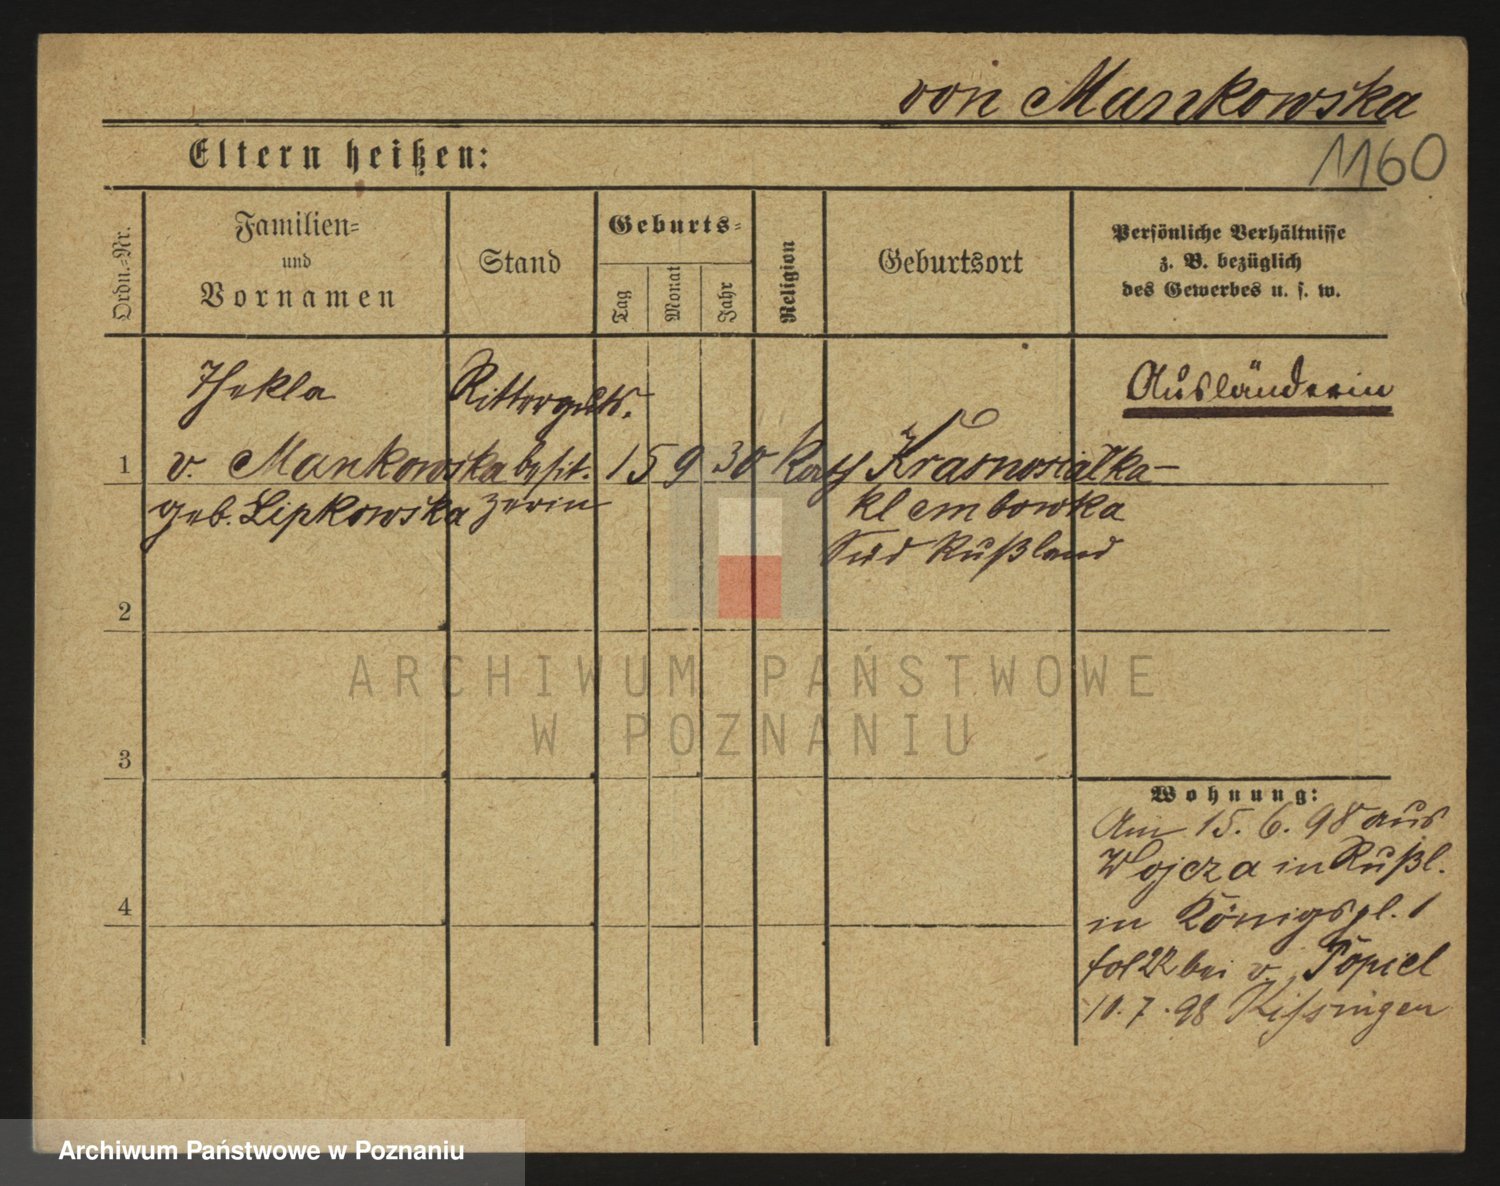 von Mankowska
1160
Eltern heißen:
Ordn.-Nr.
Familien-
und
Vornamen
Stand
Geburts-
Tag
Monat
Jahr
Religion
Geburtsort
Persönliche Verhältnisse
z. B. bezüglich
des Gewerbes u. s. w.
Thekla
Ritterguts-
Ausländerin
1
v. Mankowska besit- 15 9 30 Kath
geb. Lipkowska zerin
klembowka
Süd Rußland
2
ARCHIWUM PAŃSTWOWE
W POZNANIU
3
Wohnung:
Am 15. 6. 98 aus
Wojcza in Rußl.
4
in Königspl. 1
bei v.
10. 7. 98 Kissingen
Archiwum Państwowe w Poznaniu